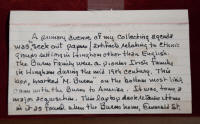 A primary avenue of my collecting agenda
was to seek out papers & artifacts relating to Ethnic
groups settling in Hingham other than English.
The Burns Family were a pioneer Irish Family
in Hingham during the mid 19th century. This
box, marked M. Burns on the bottom most likely
came with the Burns to America. It was from a
major acquisition. This lap top desk & other items
in it was found when the Burns home, Emerald St.